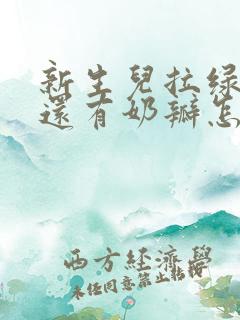 新生兒拉綠
還有奶瓣怎
西方經濟學
未經同意禁止轉授